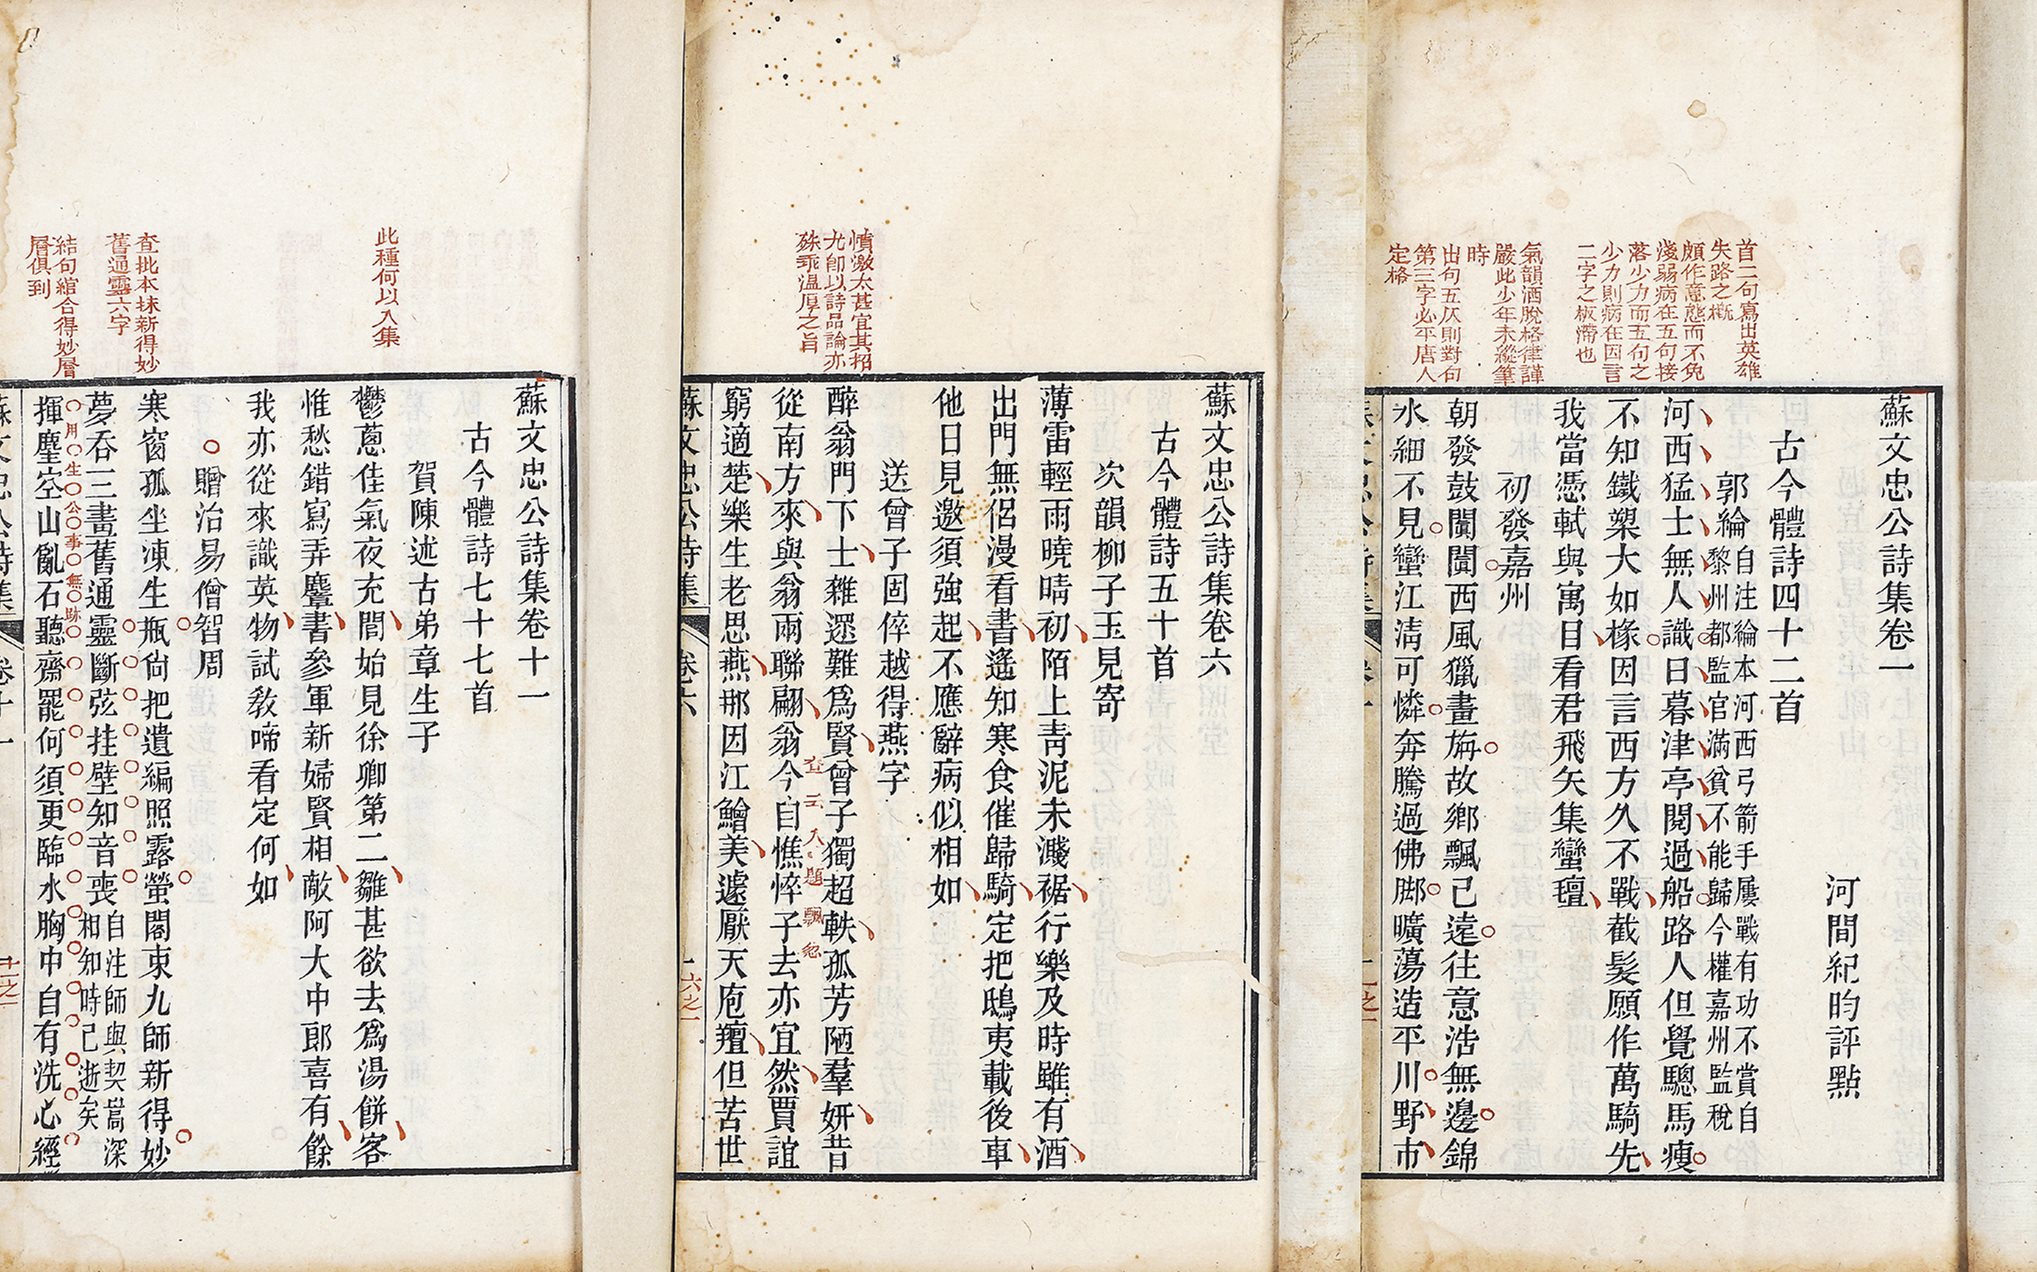 蘇文忠公詩集卷一
河間紀昀評點
古今體詩四十二首
郭綸
自注綸本河西弓箭手屢戰有功不賞自
黎州都監官滿貧不能歸今權嘉州監稅
河西猛士無人識日暮津亭閱過船路人但覺驄馬瘦
不知鐵槊大如椽因言西方久不戰截髮願作萬騎先
我當憑軾與寓目看君飛矢集蠻氊
初發嘉州
朝發鼓闐闐西風獵畫旃故鄉飄已遠往意浩無邊錦
水細不見蠻江清可憐奔騰過佛脚曠蕩造平川野市
首二句寫出英雄
失路之概
頗作意態而不免
淺弱病在五句接
落少力而五句之
少力則病在因言
二字之板滯也
氣韻洒脫格律謹
嚴此少年未縱筆
時
出句五仄則對句
第三字必平唐人
定格
蘇文忠公詩集卷六
古今體詩五十首
次韻柳子玉見寄
薄雷輕雨曉晴初陌上青泥未濺裾行樂及時雖有酒
出門無侶漫看書遙知寒食催歸騎定把鴟夷載後車
他日見邀須強起不應辭病似相如
送曾子固倅越得燕字
醉翁門下士雜遝難爲賢曾子獨超軼孤芳陋羣妍昔
從南方來與翁兩聯翩翁今自憔悴子去亦宜然賈誼
窮適楚樂生老思燕那因江鱠美遽厭天庖羶但苦世
憤激太甚宜其招
尤卽以詩品論亦
殊乖溫厚之旨
查云入題飄忽
蘇文忠公詩集
卷六
六之一
蘇文忠公詩集卷十一
古今體詩七十七首
賀陳述古弟章生子
鬱蔥佳氣夜充閭始見徐卿第二雛甚欲去爲湯餅客
惟愁錯寫弄麞書參軍新婦賢相敵阿大中郎喜有餘
我亦從來識英物試敎啼看定何如
贈治易僧智周
寒窗孤坐凍生瓶尙把遺編照露螢閣束九師新得妙
夢吞三畫舊通靈斷弦挂壁知音喪
自注師與契嵩深
相知時已逝矣
揮麈空山亂石聽齋罷何須更臨水胸中自有洗心經
此種何以入集
查批本抹新得妙
舊通靈六字
結句綰合得妙層
層俱到
用生公事無跡